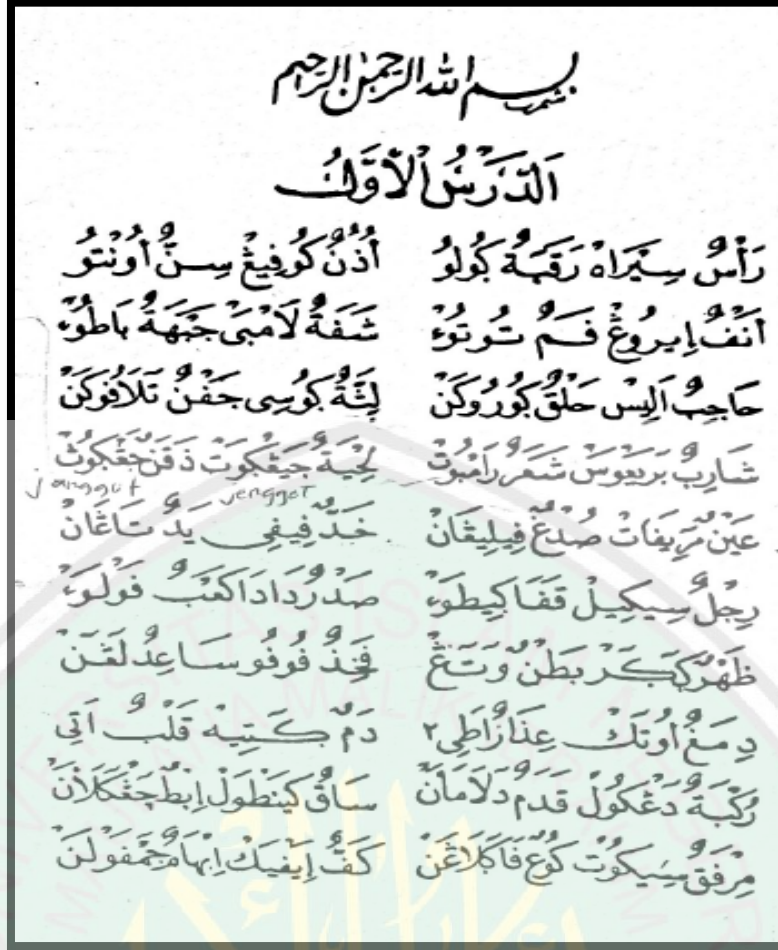 بسم الله الرحمن الرحيم
الدَّرْسُ الْأَوَّلُ
رَأْسٌ سِيْرَاهْ رَقَبَةٌ كُولُو أُذُنٌ كُوفِيڠْ سِنٌّ أُونْتُو
أَنْفٌ إِيرُوڠْ فَمٌ تُوتُوءْ شَفَةٌ لَامْبَى جَبْهَةٌ بَاطُوءْ
حَاجِبٌ أَلِيسْ حَلْقٌ كُورُوكَنْ لِثَةٌ كُوسِى جَفْنٌ تَلَافُوكَنْ
شَارِبٌ بْرَيْعَوسْ شَعَرٌ رَامْبُوتْ لِحْيَةٌ جَيڠْكَوتْ ذَقَنٌ جَڠْكُوتْ
janggut jenggot
عَيْنٌ مَرِيفَاتْ صُدْغٌ فِيلِيڠَانْ خَدٌّ فِيفِى يَدٌ تَاڠَانْ
رِجْلٌ سِيكِيلْ قَفَا كِيطَوءْ صَدْرٌ دَادَا كَعْبٌ فَولَوءْ
ظَهْرٌ كَكَرْ بَطْنٌ وَتَڠْ فَخِذٌ فُوفُو سَاعِدٌ لَڠَنْ
دِمَغٌ أُوتَكْ عِذَارٌ اَطِى٢ دَمٌ كَتِيهْ قَلْبٌ اَتِى
رُكْبَةٌ دَڠْكُولْ قَدَمٌ دَلَامَانْ سَاقٌ كَينْطَولْ اِبْطٌ جَڠْكَلَانْ
مِرْفَقٌ سِيكُوتْ كُوعٌ فَاكَلَاڠَنْ كَفٌّ إِيفَيكْ اِبْهَامٌ جَمْفَولَنْ